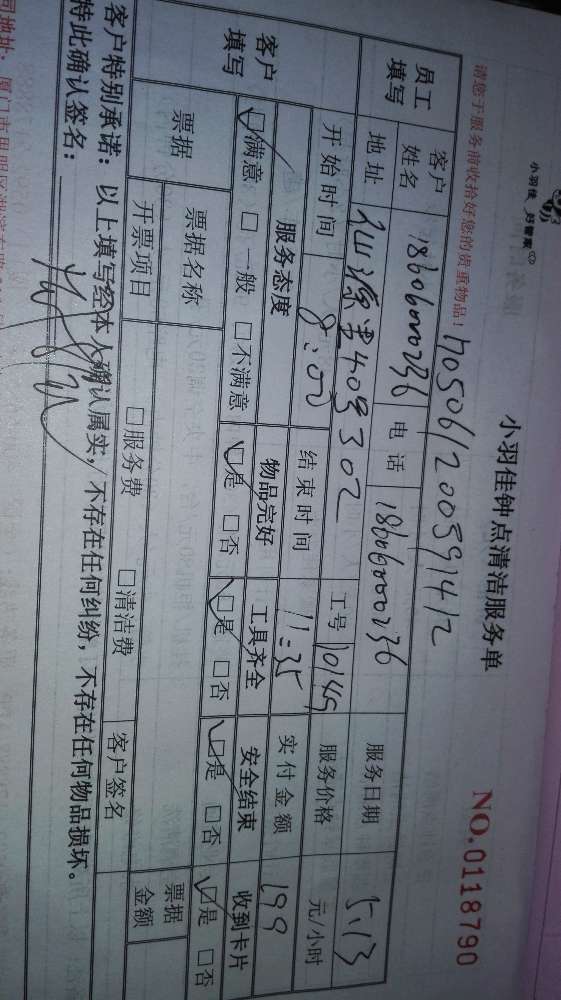 小羽佳 妇管家
小羽佳钟点清洁服务单
NO.0118790
请您于服务前收拾好您的贵重物品！
1705061200591412
员工填写 客户姓名 18606000236 电话 18606000236 服务日期 5.13
地址 仙源里 409 302 工号 10149 服务价格 元/小时
开始时间 8:00 结束时间 11:35 实付金额 199
客户填写 服务态度 物品完好 工具齐全 安全结束 收到卡片
☑满意 □一般 □不满意 ☑是 □否 ☑是 □否 ☑是 □否 ☑是 □否
票据 票据名称 票据金额
开票项目 □服务费 □清洁费 客户签名
客户特别承诺：以上填写经本人确认属实，不存在任何纠纷，不存在任何物品损坏。
特此确认签名：